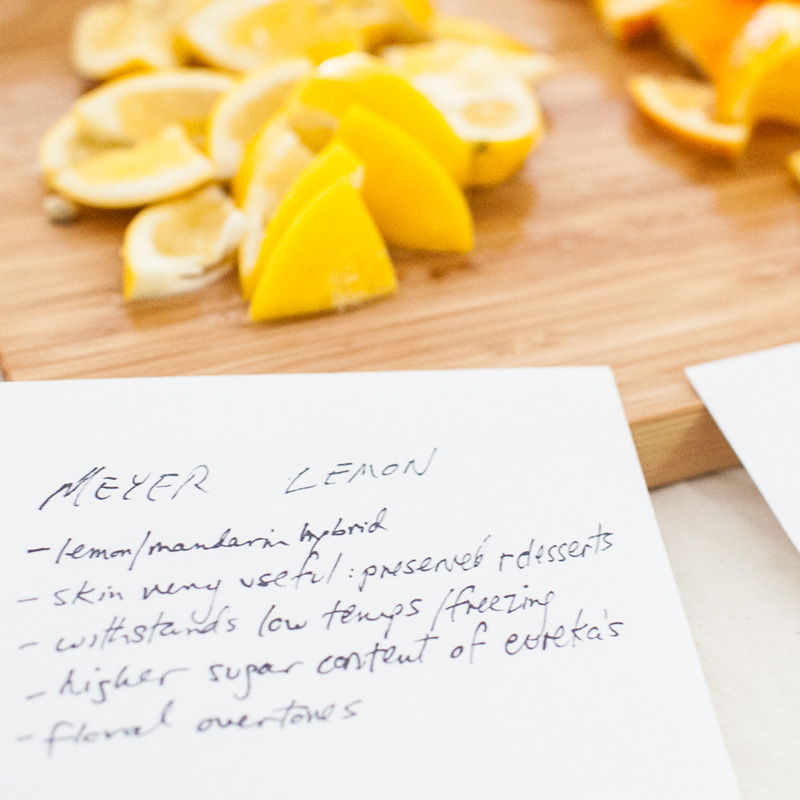 MEYER LEMON
- lemon/mandarin hybrid
- skin very useful: preserves + desserts
- withstands low temps/freezing
- higher sugar content of eureka's
- floral overtones